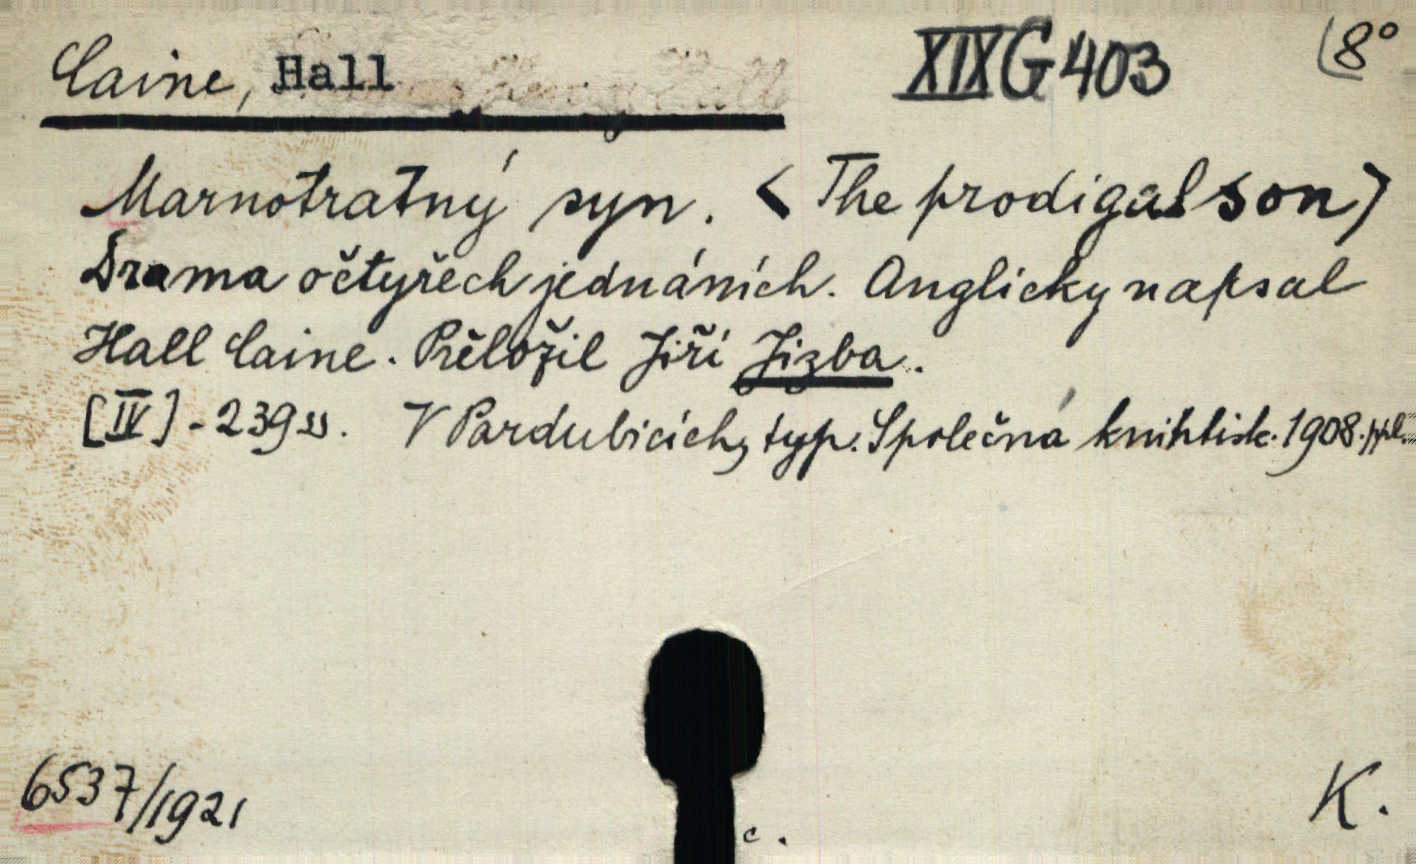 Caine, Hall XIX G 403 8°
Marnotratný syn. < The prodigal son>
Drama o čtyřech jednáních. Anglicky napsal
Hall Caine. Přeložil Jiří Jizba.
[IV] - 239 s. V Pardubicích, typ. Společná knihtisk. 1908.
6537/1921
K.
c.